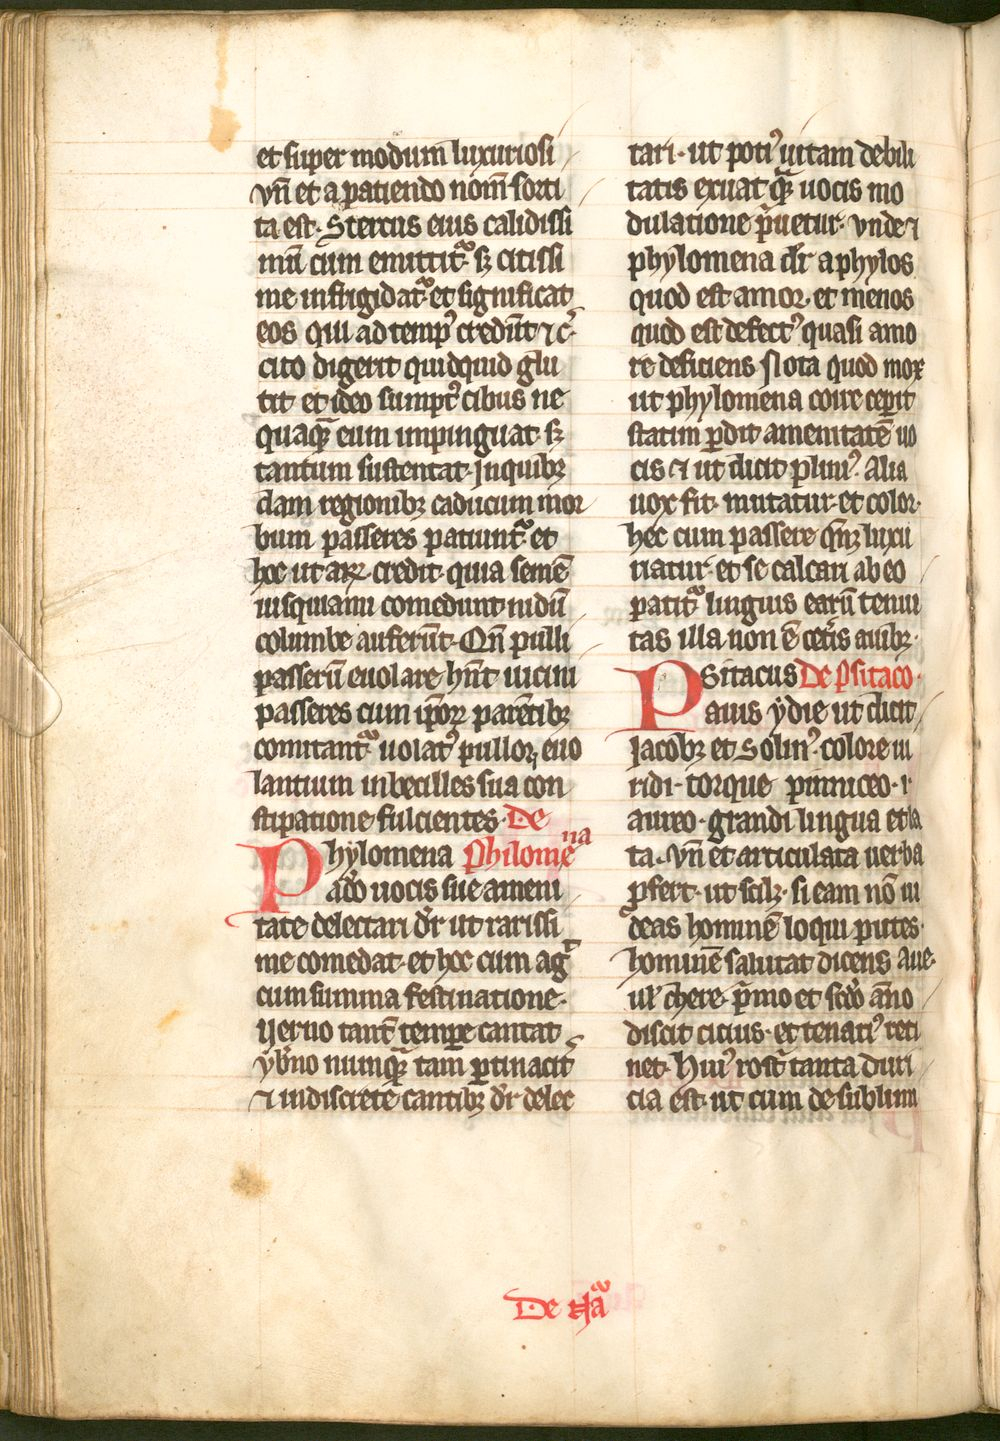 et super modum luxuriosi
vñ et a patiendo nom̄ sorti
ta est. Stercus eius calidissi
mū cum emittit᷑. sꝫ citissi
me infrigidat᷑. et significat
eos qui ad temp᷒ credūt ⁊ c᷒.
cito digerit quidquid glu
tit et ideo sumpt᷒ cibus ne
quaqᷓ eum impinguat. sꝫ
tantum sustentat. Jn quibꝫ
dam regionibꝫ caducum mor
bum passeres patiunt᷑ et
hoc ut credit. quia semē
iusquiami comedunt nidū
columbe auferūt. Qñ pulli
passerū euolare hn̄t uicini
passeres cum ip̄oꝝ parētibꝫ
comitant᷑ uolat᷒ pulloꝝ euo
lantium inbecilles sua con
stipatione fulcientes. De
Phylomena Philome
na
adeo uocis sue ameni
tate delectari dr̄ ut rarissi
me comedat. et hoc cum agr̄
cum summa festinatione.
Uerno tant̄ tempore cantat
yb̄no numqᷓ tam ꝑtinacit᷑
⁊ indiscrete cantibꝫ dr̄ delec
tari. ut poti᷒ uitam debili
tatis exuat qᷓꝫ uocis mo
dulatione pͥuetur. vnde ⁊
phylomena dr̄ a phylos
quod est amor. et menos
quod est defect᷒ quasi amo
re deficiens Nota quod mox
ut phylomena coire ceperit
statim ꝑdit amenitatē uo
cis ⁊ ut dicit plini᷒. Alia
uox fit. mutatur. et color.
hec cum passere luxu
riatur. et se calcari ab eo
patit᷑ linguis earū tenui
tas illa non ē ceteris auibꝫ.
Psitacus De psitaco.
auis ydie ut dicit
Jacobꝫ et Solin᷒. colore ui
ridi. torque puniceo.
aureo. grandi lingua et la
ta. vñ et articulata uerba
ꝓfert. ut scilꝫ. si eam nō ui
deas hominē loqui putes.
hominē salutat dicens aue.
ul᷑ chere. pͥmo et scd̄o āno
discit cicius. et tenaci᷒ reti
net. Hui᷒ rostͥ tanta duri
cia est. ut cum de sublimi
De Naᷓ